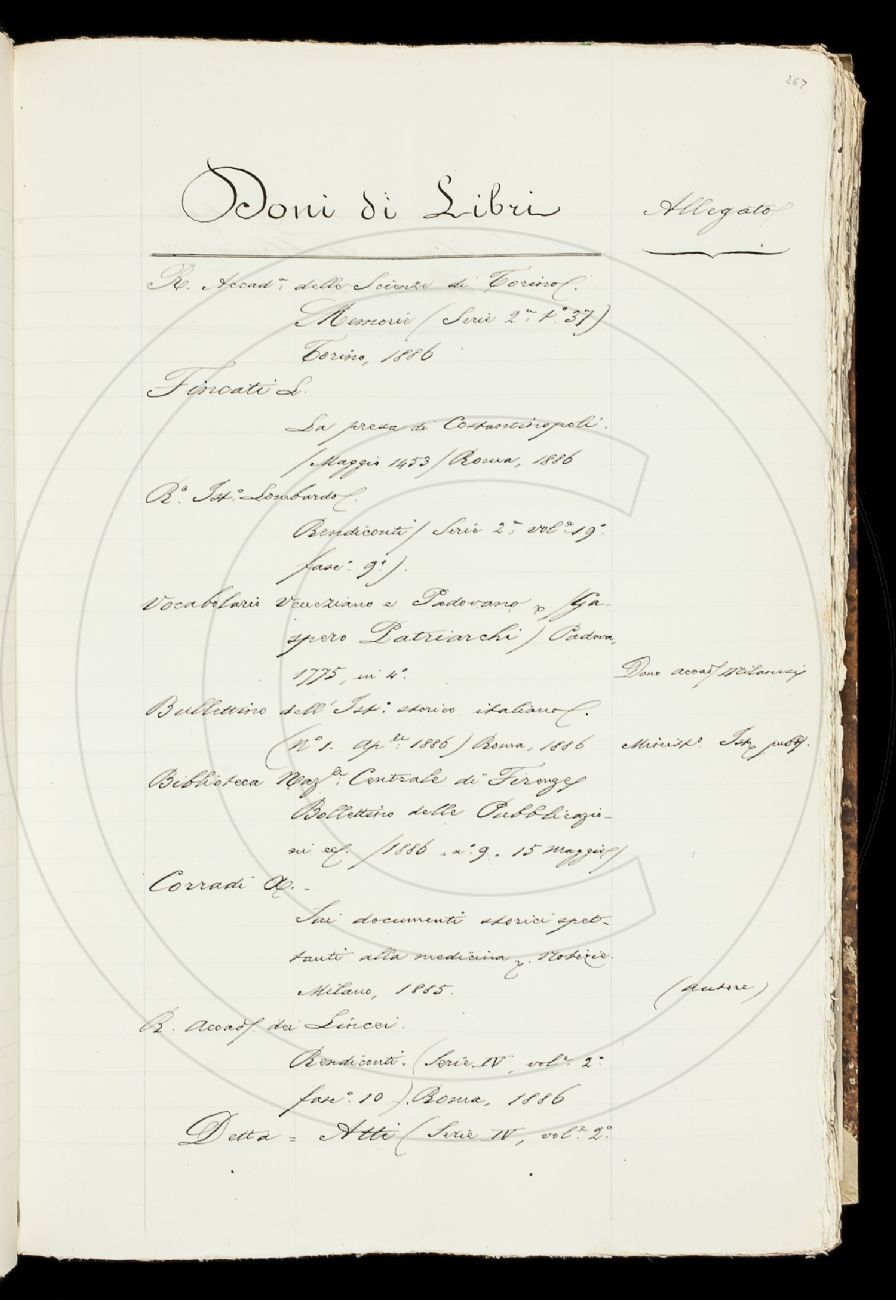 267
Doni di Libri
Allegato
R. Accad.ª delle Scienze di Torino.
Memorie (Serie 2.ª t.º 37)
Torino, 1886
Fincati L.
La presa di Costantinopoli.
(Maggio 1453) Roma, 1886
R.º Ist.º Lombardo.
Rendiconti (Serie 2.ª vol.º 19º
fasc.º 9.º).
Vocabolario Veneziano e Padovano (Ga-
spero Patriarchi) Padova,
1775, in 4º.
Dono accad.
Bullettino dell'Ist.º storico italiano.
(Nº 1. Ap.le 1886) Roma, 1886
Minist.º Ist. pubb.
Biblioteca Naz.le Centrale di Firenze
Bollettino delle Pubblicazio-
ni ec. (1886 - nº 9 - 15 Maggio)
Corradi A. -
Sui documenti storici spet-
tanti alla medicina Notizie.
Milano, 1885.
(autore)
R. accad. dei Lincei.
Rendiconti. (Serie IV, vol.º 2º
fasc.º 10). Roma, 1886
Detta = Atti (Serie IV, vol.º 2.º